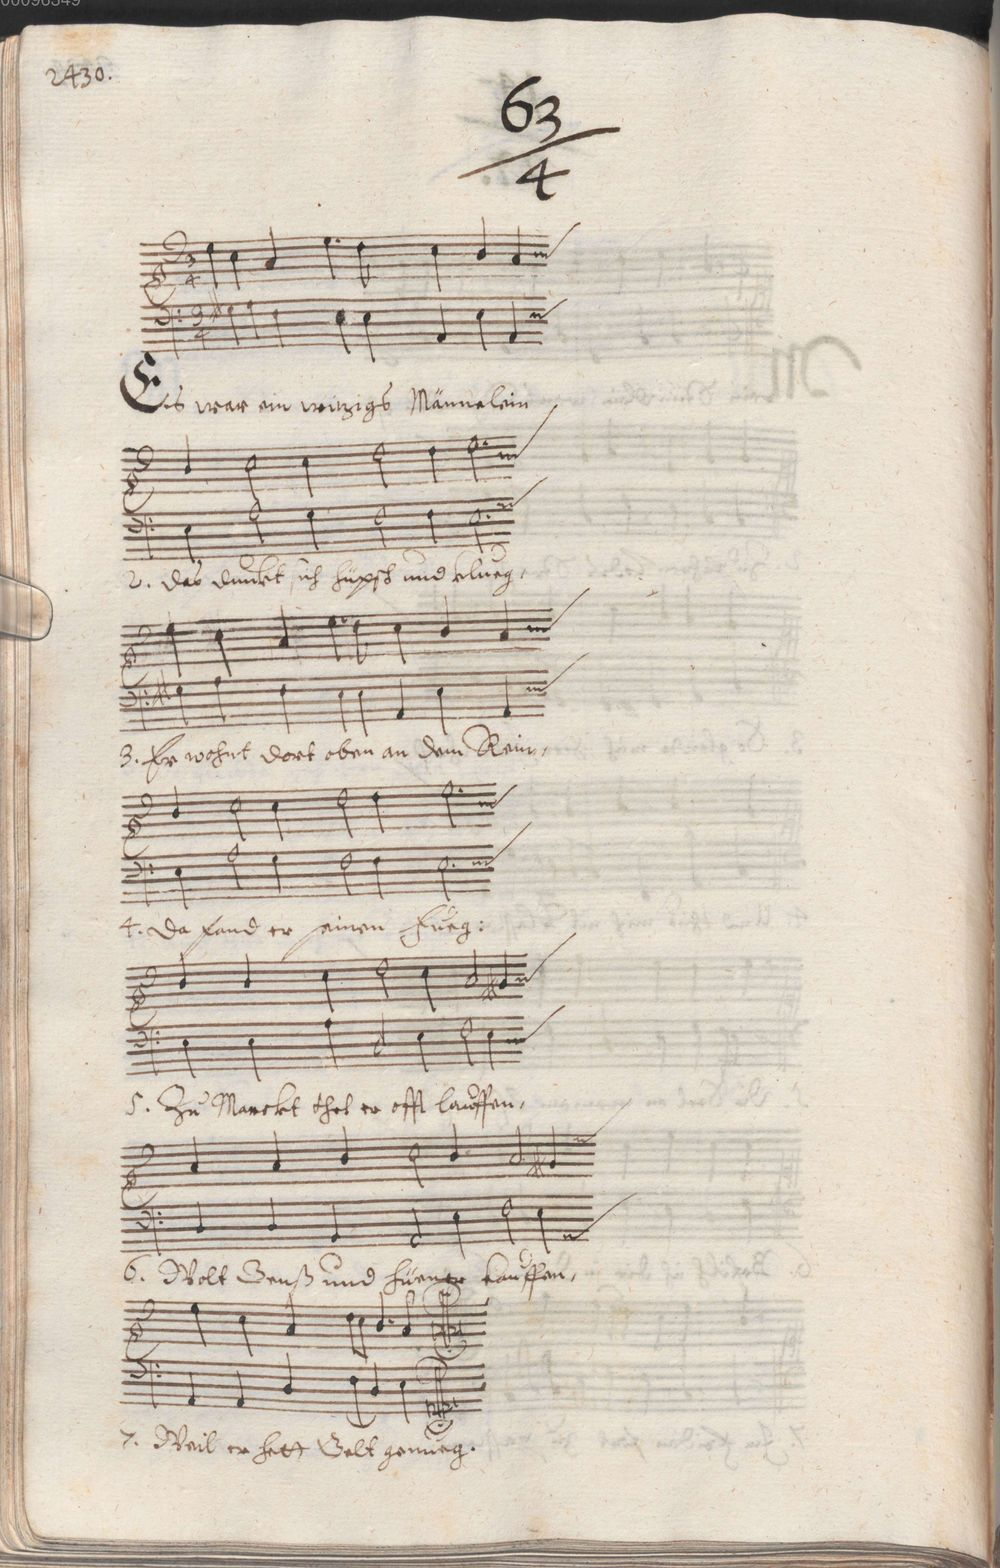 00096349
2430.
63
4
Es war ein winzigs Männelein
2. das dunckt sich hüpsch und klueg,
3. Er wohnt dort oben an dem Rein,
4. Da fand er seinen fueg:
5. Zu Marckt thet er offt lauffen,
6. Wolt Genß und hüener kauffen,
7. Weil er hett Gelt genueg.